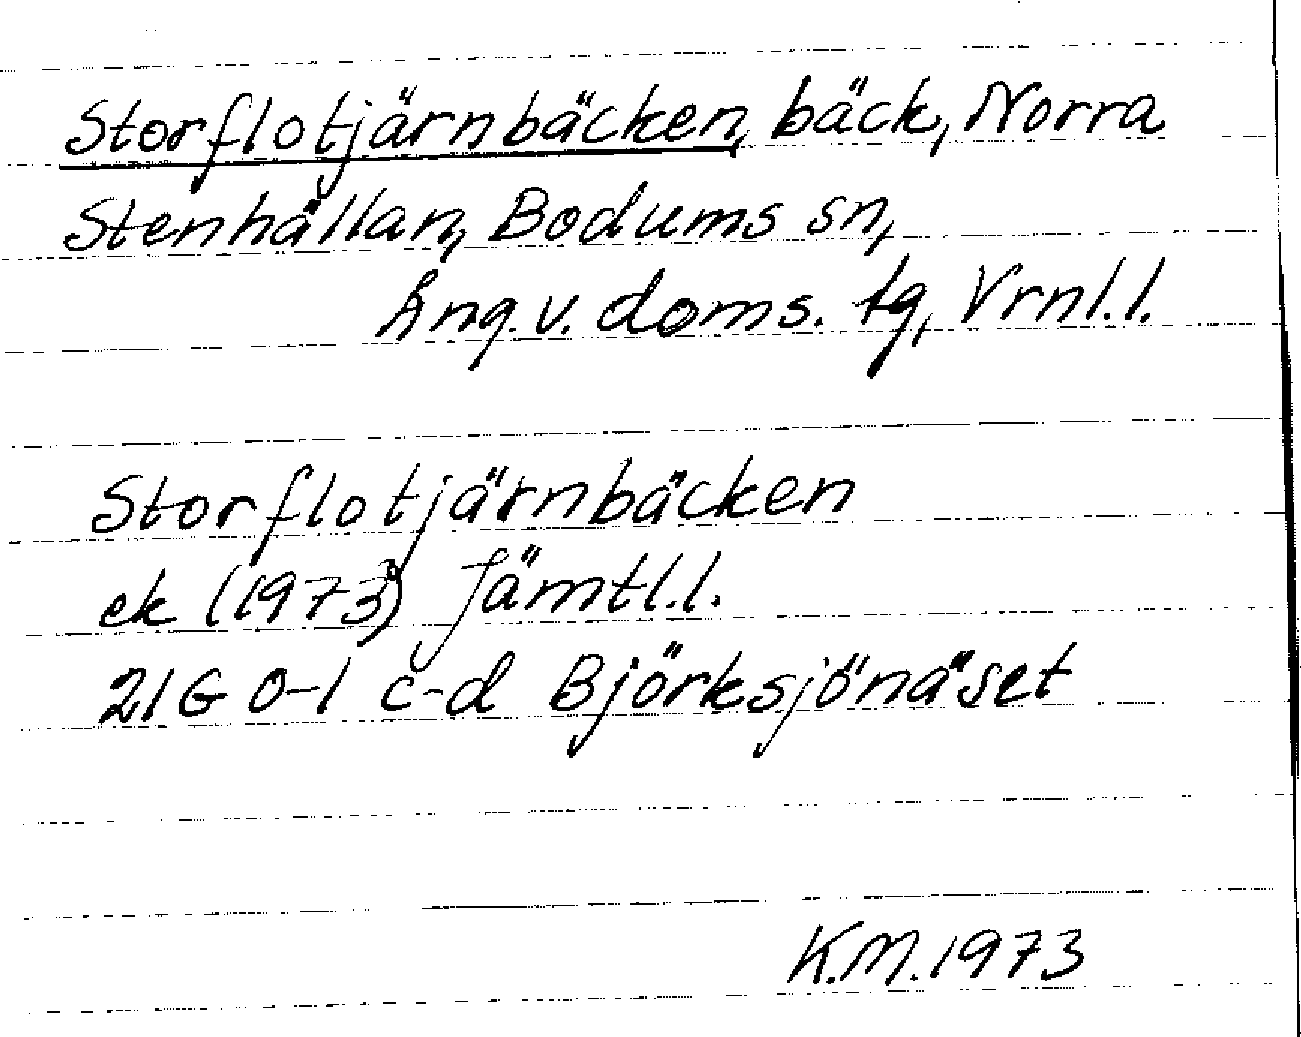 Storflotjärnbäcken, bäck, Norra
Stenhällan, Bodums sn,
Ång.v. doms. tg, Vrnl.l.
Storflotjärnbäcken
ek (1973) Jämtl.l.
21G 0-1 c-d Björksjönäset
K.M. 1973